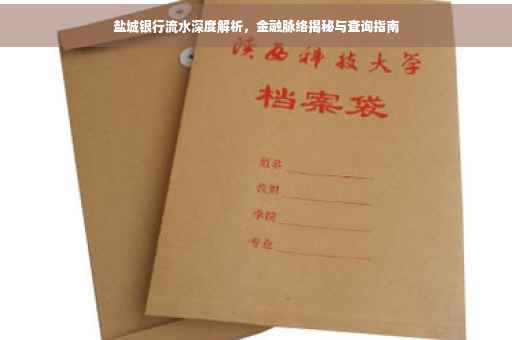 盐城银行流水深度解析，金融脉络揭秘与查询指南
陕西科技大学
档案袋
姓名
班别
学院
专业